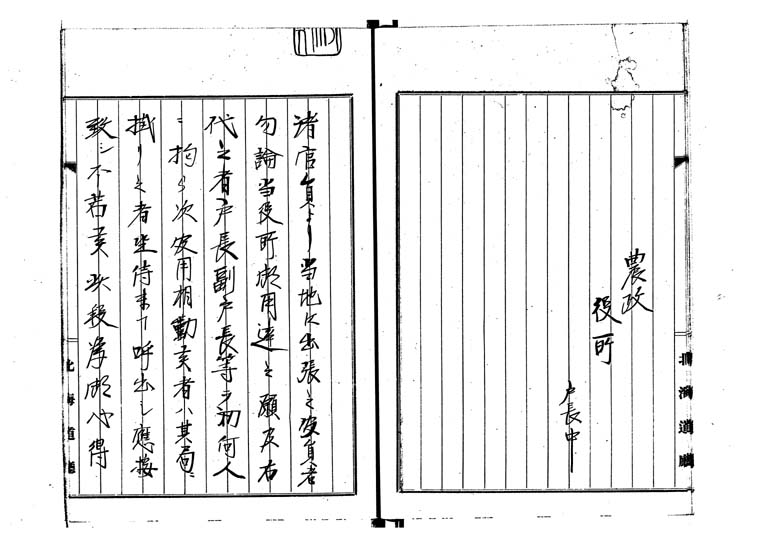 農政
役所
戸長中
北海道廳
諸官員より当地に出張之役員者
勿論当役所御用達之願及右
代之者戸長副戸長等ヲ初何人
ニ拘ラ次御用相勤候者ハ其局ニ
掛り之者坐待ま丁呼出シ應接
致シ不苦候此段為御心得
北海道廳